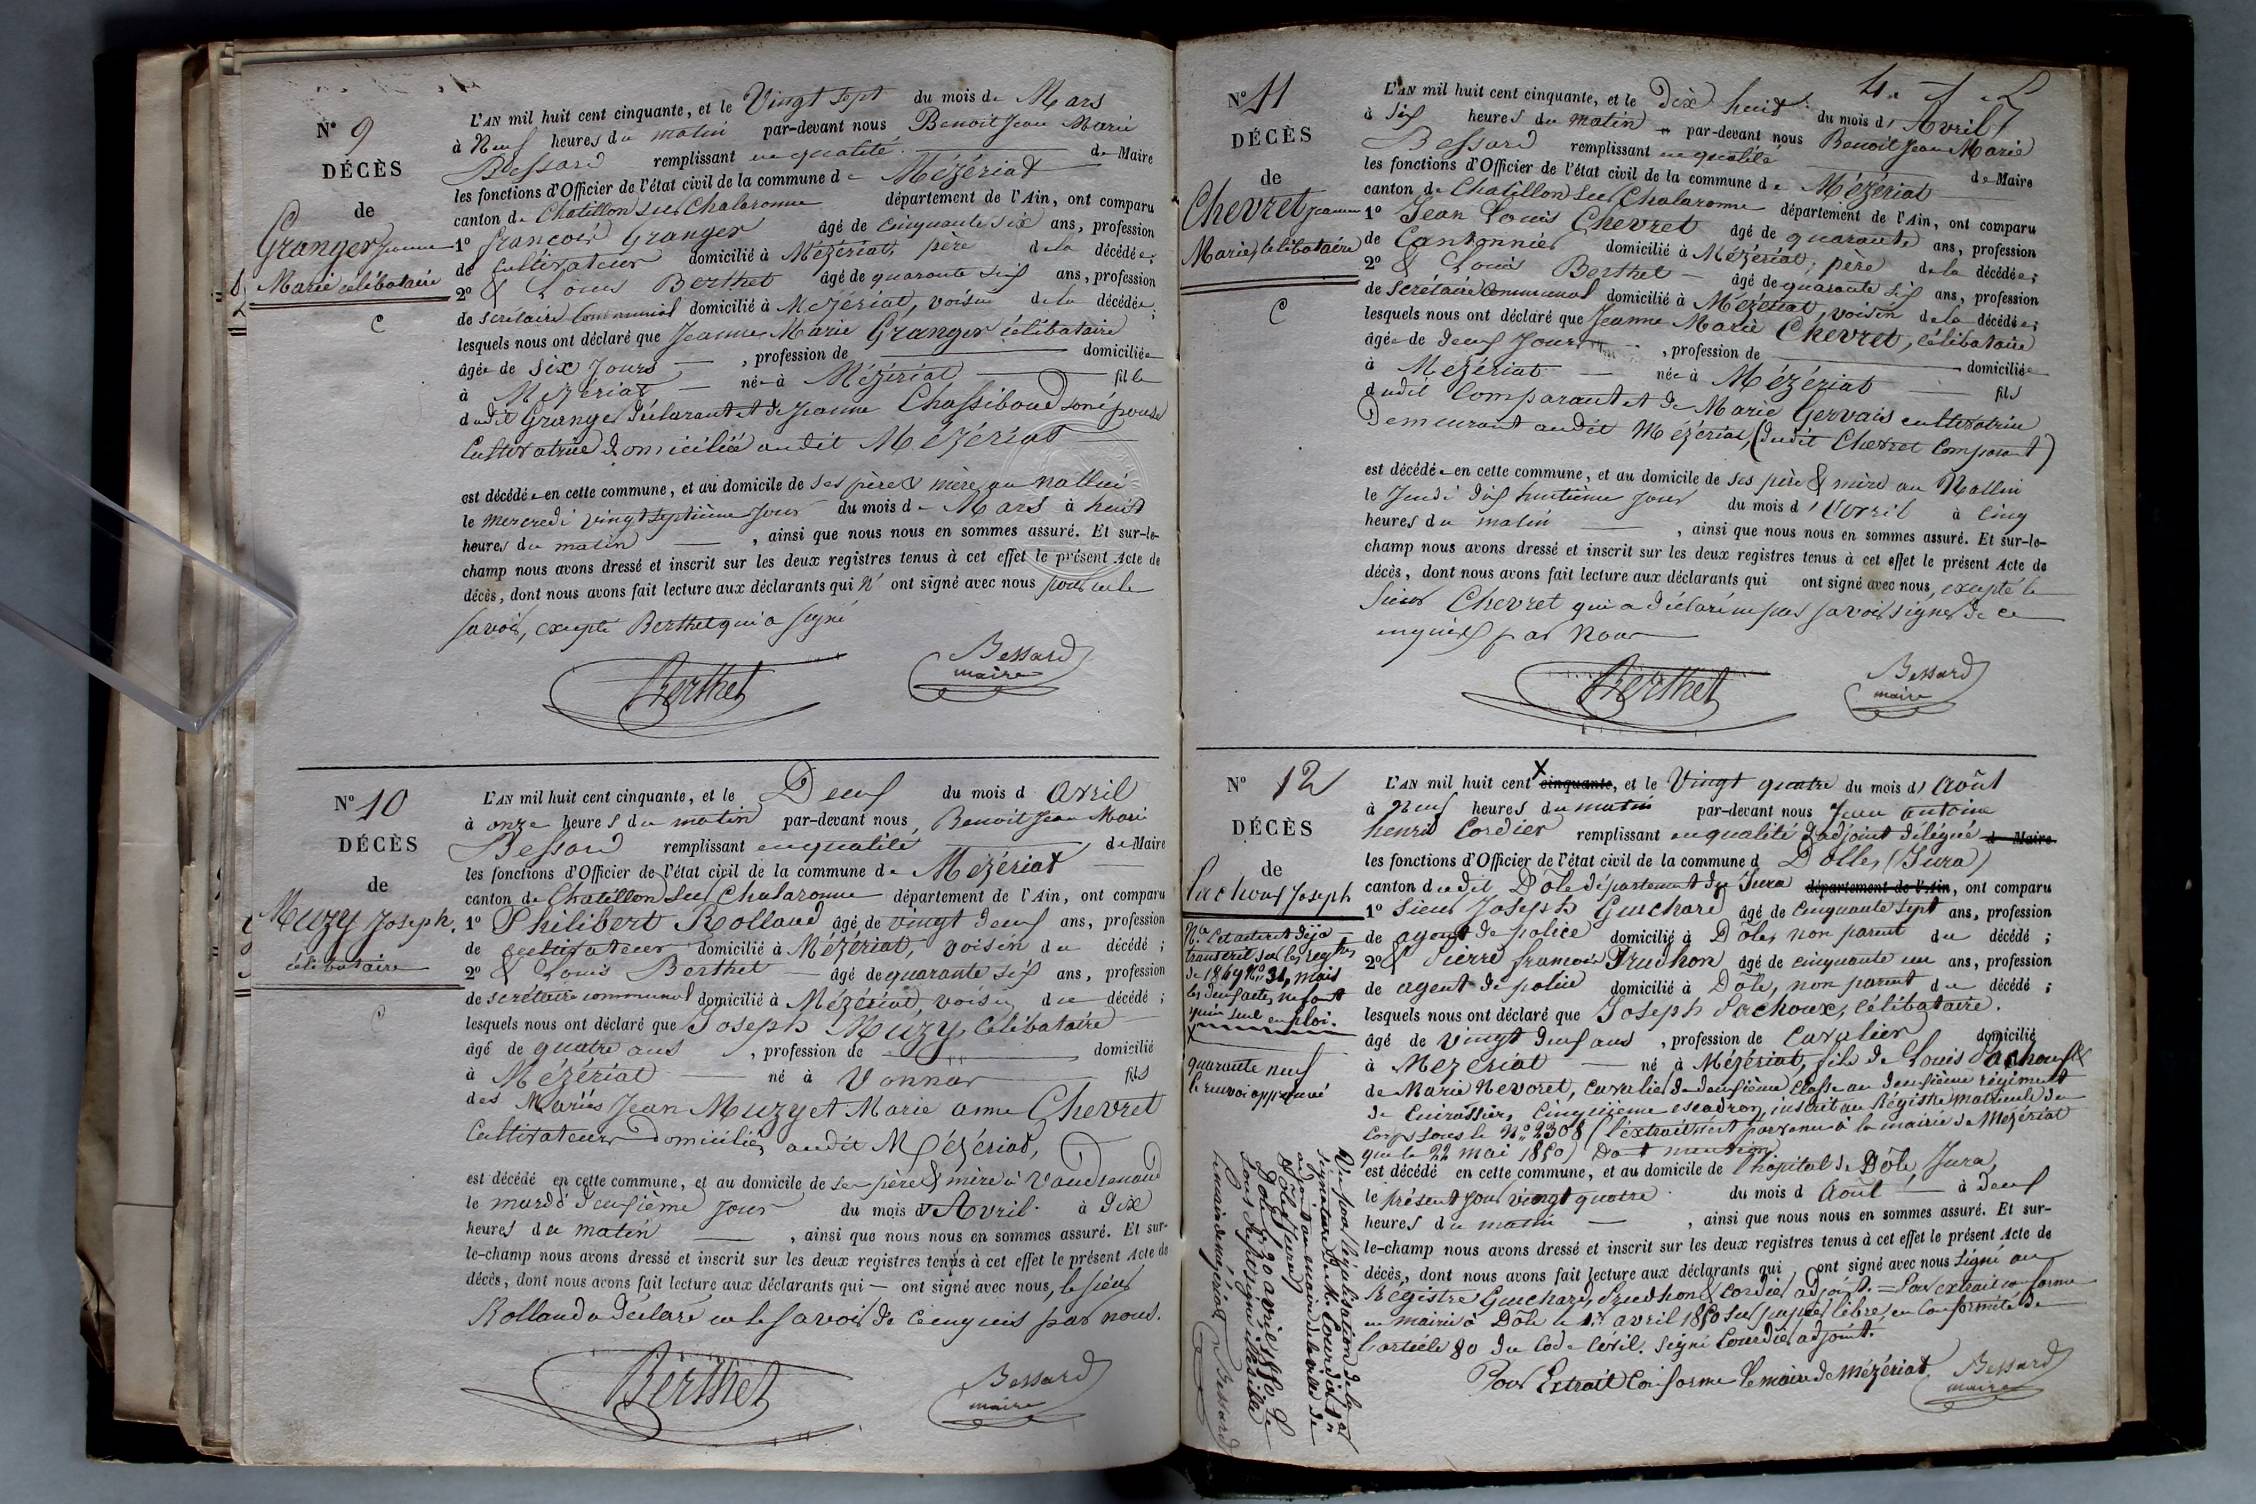 N° 9
DÉCÈS
de
Granger Jeanne
Marie célibataire
C
L'AN mil huit cent cinquante, et le Vingt sept du mois de Mars
à Neuf heures du matin par-devant nous Benoit Jean Marie
Bessard remplissant en qualité de Maire
les fonctions d'Officier de l'état civil de la commune de Mézériat
canton de Chatillon sur Chalaronne département de l'Ain, ont comparu
1° françois Granger âgé de cinquante six ans, profession
de cultivateur domicilié à Mézériat, père de la décédée;
2° & Louis Berthet âgé de quarante six ans, profession
de secrétaire communal domicilié à Mézériat, voisin de la décédée;
lesquels nous ont déclaré que Jeanne Marie Granger célibataire
âgée de six jours, profession de domiciliée
à Mézériat née à Mézériat fille
dudit Granger déclarant et de Jeanne Chassiboud son épouse
Cultivatrice domiciliée audit Mézériat
est décédée en cette commune, et au domicile de ses père & mère au
le mercredi vingt septième jour du mois de Mars à huit
heures du matin, ainsi que nous nous en sommes assuré. Et sur-le-
champ nous avons dressé et inscrit sur les deux registres tenus à cet effet le présent Acte de
décès, dont nous avons fait lecture aux déclarants qui n' ont signé avec nous pour ne le
savoir, excepté Berthet qui a signé
Berthet
Bessard
maire
N° 10
DÉCÈS
de
Muzy Joseph,
célibataire
C
L'AN mil huit cent cinquante, et le Deux du mois d avril
à onze heures du matin par-devant nous, Benoit Jean Marie
Bessard remplissant en qualité de Maire
les fonctions d'Officier de l'état civil de la commune de Mézériat
canton de Chatillon sur Chalaronne département de l'Ain, ont comparu
1° Philibert Rolland âgé de vingt deux ans, profession
de cultivateur domicilié à Mézériat, voisin du décédé;
2° & Louis Berthet âgé de quarante six ans, profession
de secrétaire communal domicilié à Mézériat, voisin du décédé;
lesquels nous ont déclaré que Joseph Muzy, célibataire
âgé de quatre ans, profession de domicilié
à Mézériat né à Vonnas fils
des Mariés Jean Muzy et Marie anne Chevret
Cultivateurs domiciliés audit Mézériat,
est décédé en cette commune, et au domicile de ses père & mère à Vaudrenand
le mardi deuxième jour du mois d'Avril à dix
heures du matin, ainsi que nous nous en sommes assuré. Et sur-
le-champ nous avons dressé et inscrit sur les deux registres tenus à cet effet le présent Acte de
décès, dont nous avons fait lecture aux déclarants qui ont signé avec nous, le sieur
Rolland a déclaré ne le savoir de ce enquis par nous.
Berthet
Bessard
maire
N° 11
DÉCÈS
de
Chevret Jeanne
Marie, célibataire
C
L'AN mil huit cent cinquante, et le Dix huit du mois d' Avril
à six heures du matin par-devant nous Benoit Jean Marie
Bessard remplissant en qualité de Maire
les fonctions d'Officier de l'état civil de la commune de Mézériat
canton de Chatillon sur Chalaronne département de l'Ain, ont comparu
1° Jean Louis Chevret âgé de quarante ans, profession
de Cantonnier domicilié à Mézériat; père de la décédée;
2° & Louis Berthet âgé de quarante six ans, profession
de secrétaire communal domicilié à Mézériat, voisin de la décédée;
lesquels nous ont déclaré que Jeanne Marie Chevret, célibataire
âgée de deux Jours, profession de domiciliée
à Mézériat née à Mézériat fils
dudit Comparant et de Marie Gervais cultivatrice
Demeurant audit Mézériat, (dudit Chevret Comparant)
est décédée en cette commune, et au domicile de ses père & mère au
le Jeudi dix huitième jour du mois d'Avril à cinq
heures du matin, ainsi que nous nous en sommes assuré. Et sur-le-
champ nous avons dressé et inscrit sur les deux registres tenus à cet effet le présent Acte de
décès, dont nous avons fait lecture aux déclarants qui ont signé avec nous, excepté le
sieur Chevret qui a déclaré ne pas savoir signer de ce
enquis par Nous
Berthet
Bessard
maire
N° 12
DÉCÈS
de
Pachoux Joseph
Na. Cet acte est déjà
transcrit sur les registres
de 1849 N° 31, mais
les deux actes ne font
qu'un seul emploi.
X
quarante neuf
le renvoi approuvé
Vu pour légalisation de la
signature de M. Courdier
adjoint au maire de la ville de
Dôle (Jura)
Dôle le 20 avril 1850. Le
Sous Préfet signé illisible
le maire de mézériat Bessard
L'AN mil huit cent cinquante, et le Vingt quatre du mois d' Août
à Neuf heures du matin par-devant nous Jean Antoine
henri Cordier remplissant en qualité d'adjoint délégué d Maire
les fonctions d'Officier de l'état civil de la commune d Dolle, (Jura)
canton dudit Dôle département du Jura département de l'Ain, ont comparu
1° Sieur Joseph Guichard âgé de cinquante sept ans, profession
de agent de police domicilié à Dôle, non parent du décédé;
2° & Pierre francois Prudhon âgé de cinquante un ans, profession
de agent de police domicilié à Dôle, non parent du décédé;
lesquels nous ont déclaré que Joseph Pachoux, célibataire.
âgé de vingt deux ans, profession de Cavalier domicilié
à Mézériat né à Mézériat, fils de Louis Pachoux &
de Marie Nevoret, cavalier de deuxième classe au deuxième régiment
de Cuirassiers, cinquième escadron, inscrit au Régistre matricule du
corps sous le N° 2308 (l'extrait n'est parvenu à la mairie de Mézériat
que le 22 mai 1850) Dont mention.
est décédé en cette commune, et au domicile de l'hôpital de Dôle, Jura,
le présent jour vingt quatre du mois d Août à deux
heures du matin, ainsi que nous nous en sommes assuré. Et sur-
le-champ nous avons dressé et inscrit sur les deux registres tenus à cet effet le présent Acte de
décès, dont nous avons fait lecture aux déclarants qui ont signé avec nous Signé au
Régistre Guichard, Prudhon & Cordier adjoint. = Pour extrait conforme
en mairie à Dôle le 1er avril 1850 sur papier libre, en conformité de
l'article 80 du Code Civil. Signé Courdier adjoint.
Pour Extrait Conforme le maire de Mézériat
Bessard
maire